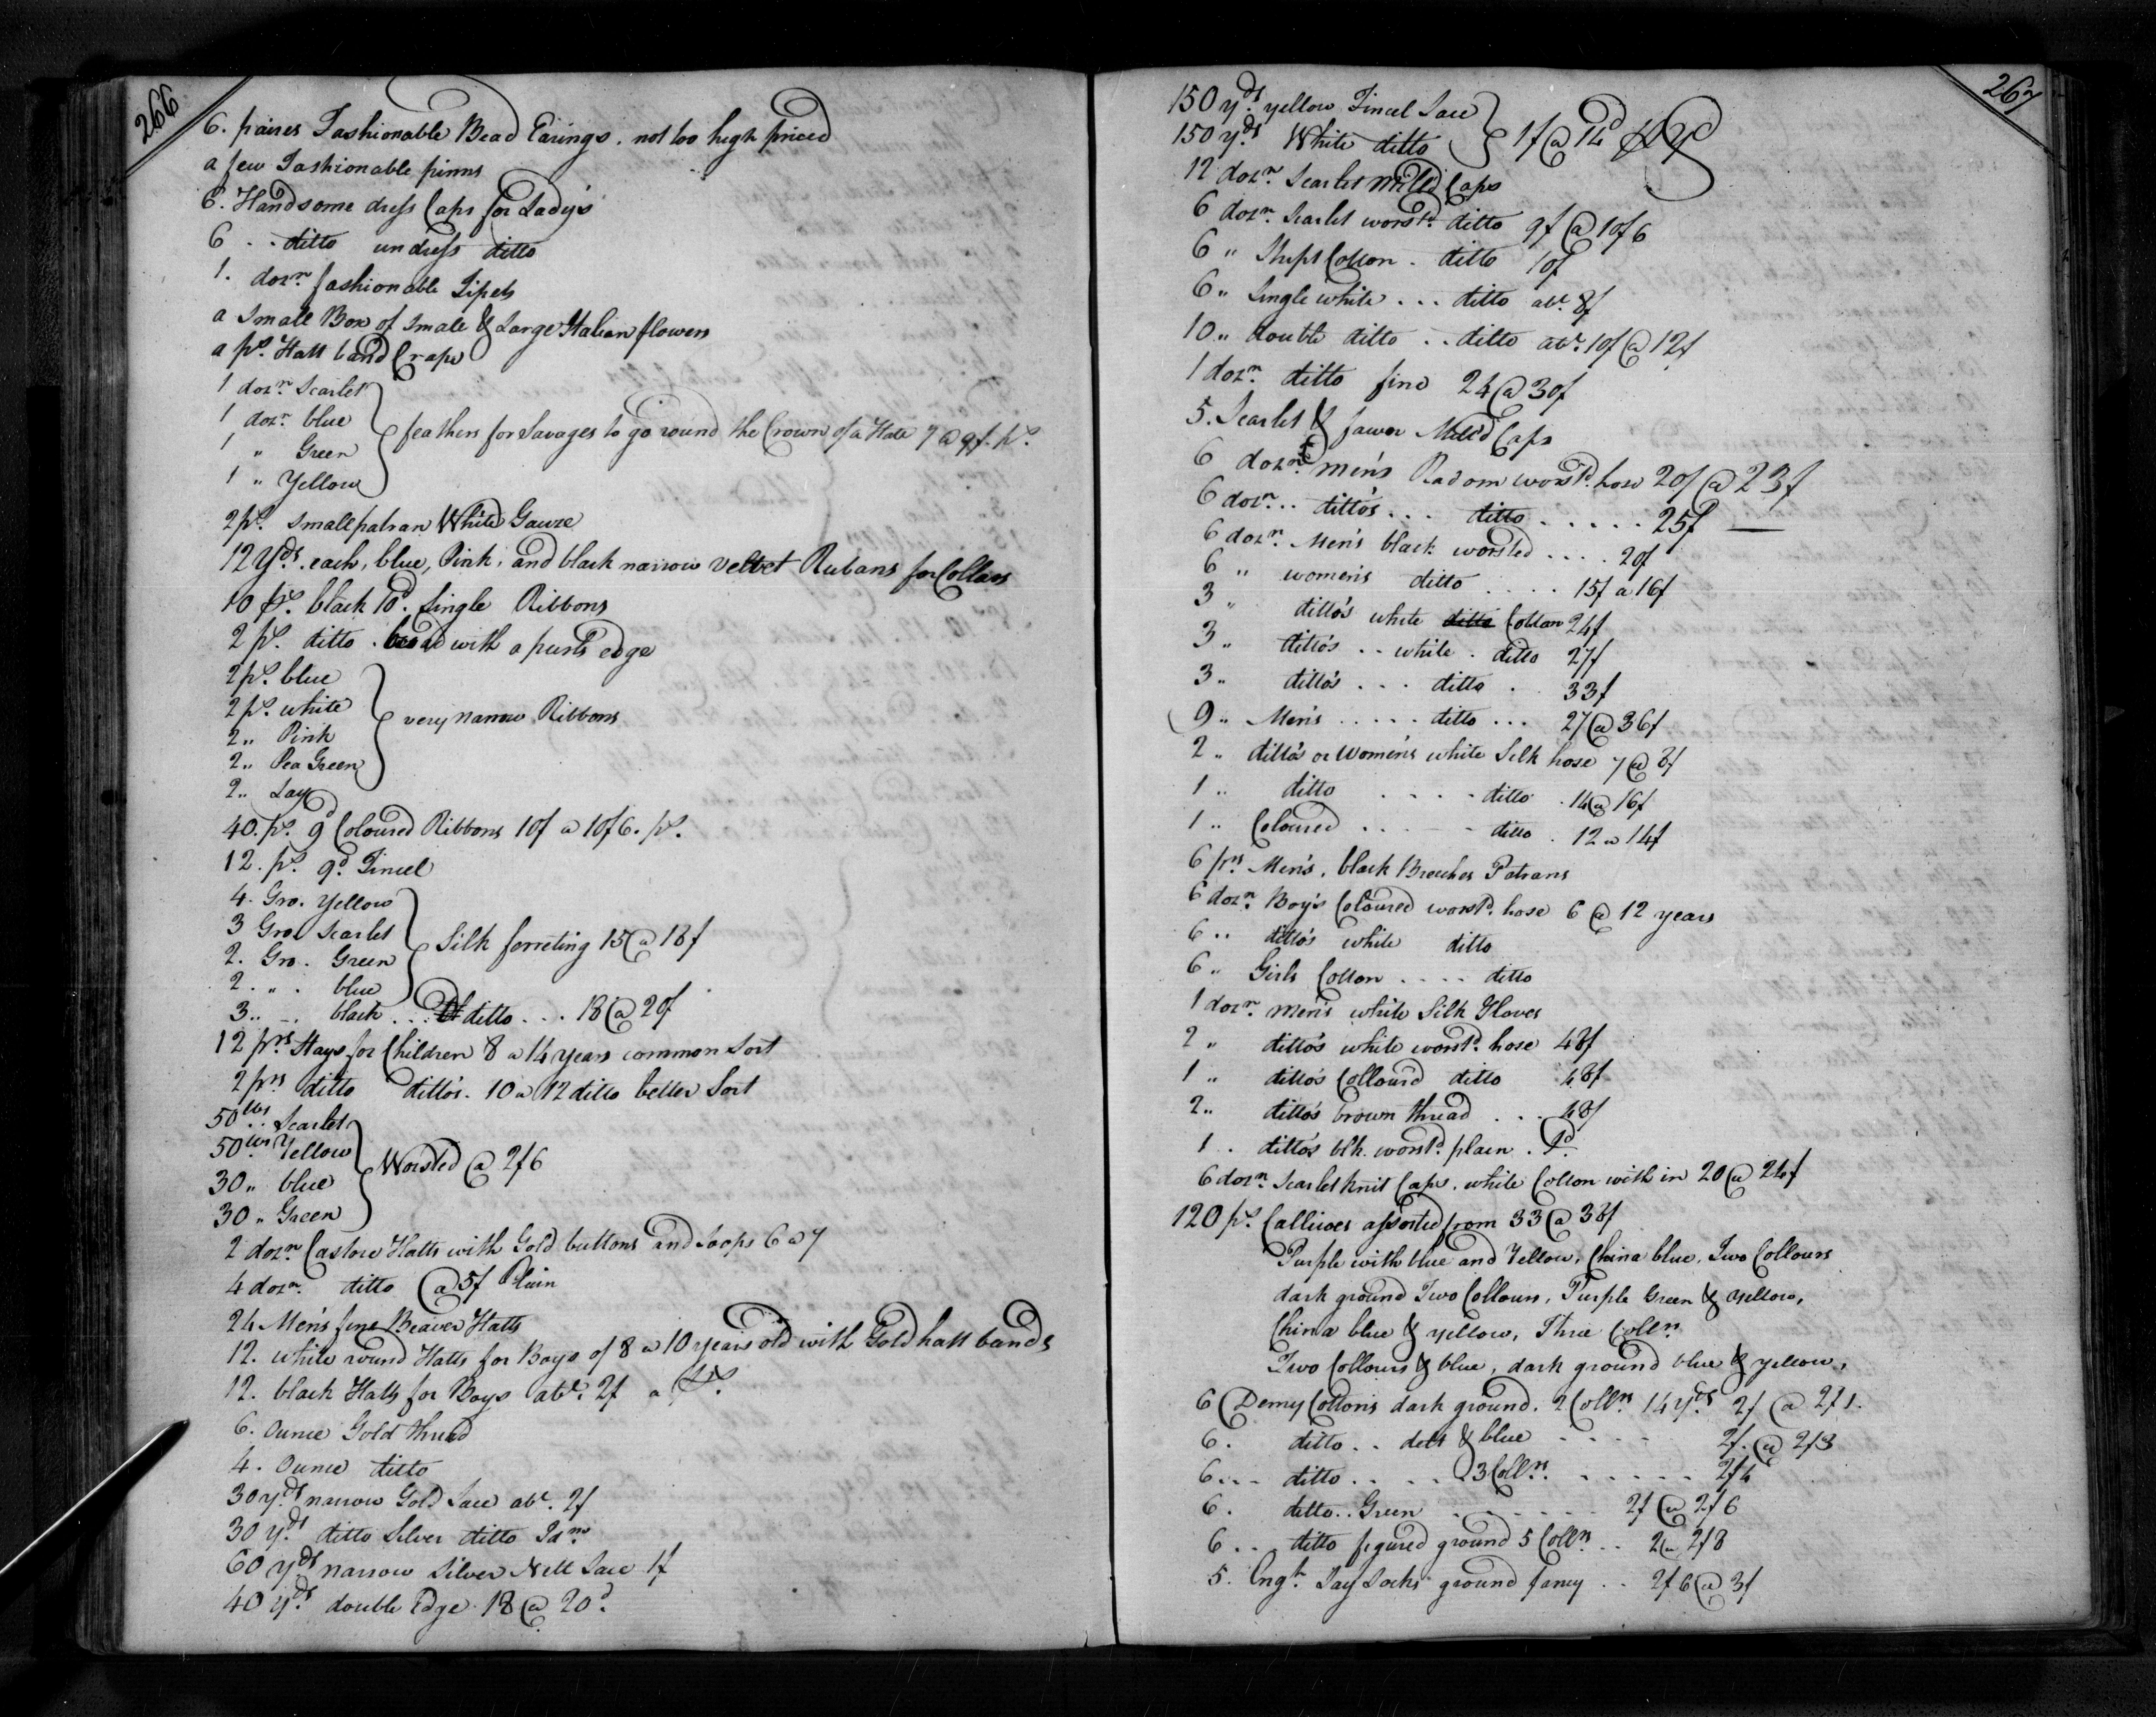 266
6. paires Fashionable Bead Earings. not too high priced
a few Fashionable pinns
6. Handsome dress Caps for Lady's
6 .. ditto undress ditto
1. dozn. fashionable Tipets
a Small Box of Small & Large Italian flowers
a ps. Hatt band Crape
1 dozn. Scarlet
1 dozn. blue
1 " Green
1 " Yellow
feathers for Savages to go round the Crown of a Hatt 7 @ 9f. ps.
2 ps. small patran White Gauze
12 Yds. each, blue, Pink, and black narrow velvet Rubans for Collars
10 ps. black 10d. single Ribbons
2 ps. ditto . broad with a pearls edge
2 ps. blue
2 ps. white
2 " Pink
2 " Pea Green
2 " Lay
very narrow Ribbons
40. ps. 9d Coloured Ribbons 10f a 10f6. ps.
12. ps. 9d. Tincel
4. Gro. Yellow
3 Gro. Scarlet
2. Gro. Green
2. " . blue
Silk ferreting 15 @ 18f
3 .. . black ... ditto ... 18 @ 20f
12 prs. Stays for Children 8 a 14 years common Sort
2 prs ditto ditto's. 10 a 12 ditto better Sort
50 lbs. Scarlet
50 lbs. Yellow
30 " blue
30 " Green
Worsted @ 2f6
2 dozn. Castore Hatts with Gold buttons and Loops 6 a 7
4 dozn. ditto @ 5f Plain
24 Men's fine Beaver Hatts
12. white round Hatts for Boys of 8 a 10 years old with Gold hatt bands
12. black Hatts for Boys abt. 2f a ps.
6. Ounce Gold thread
4. Ounce ditto
30 yds. narrow Gold Lace abt. 2f
30 yds. ditto Silver ditto Idm
60 yds. narrow Silver Nett Lace 1f
40 yds. double Edge 18 @ 20d.
267
150 yds. yellow Tincel Lace
150 yds. White ditto
1f @ 14d
12 dozn. Scarlet Milld Caps
6 dozn. Scarlet worstd. ditto 9f @ 10f6
6 " Strips Cotton . ditto 10f
6 " Single white ... ditto abt. 8f
10 " double ditto .. ditto abt. 10f @ 12f
1 dozn. ditto fine 24 @ 30f
5. Scarlet & fawer Mill'd Caps
6 dozn. men's Radom worstd. hose 20f @ 23f
6 dozn... ditto's ... ditto ..... 25f —
6 dozn. Men's black worsted ... 20f
6 " women's ditto .... 15f a 16f
3 " ditto's white ditto Cotton 24f
3 " ditto's .. white . ditto 27f
3 " ditto's ... ditto . 33f
9 " Men's ..... ditto ... 27 @ 36f
2 " ditto's or Women's white Silk hose 7 @ 8f
1 " ditto .... ditto . 14 @ 16f
1 " Coloured .... ditto . 12 a 14f
6 prs Men's, black Breeches Patrans
6 dozn. Boy's Coloured worstd. hose 6 @ 12 years
6 .. ditto's white ditto
6 " Girls Cotton .... ditto
1 dozn. men's white Silk Gloves
2 " ditto's white worstd. hose 48f
1 " ditto's Colloured ditto 48f
2 " ditto's brown thread ... 48f
1 . ditto's blk. worstd. plain .
6 dozn. Scarlet knit Caps, white Cotton with in 20 @ 24f
120 ps. Callicoes assorted from 33 @ 38f
Purple with blue and Yellow, China blue, Two Collours
dark ground Two Collours, Purple Green & Yellow,
China blue & yellow, Three Collrs.
Two Collours & blue, dark ground blue & yellow,
6 Demy Cottons dark ground. 2 Collrs. 14 yds. 2f @ 2f1.
6. ditto .. ditt & blue ..... 2f. @ 2f3
6... ditto .... 3 Collrs. ...... 2f4
6. ditto .. Green ...... 2f @ 2f6
6 .. ditto figured ground 5 Collrs. .. 2 @ 2f8
5. Engh. Lay Locks ground fancy .. 2f6 @ 3f